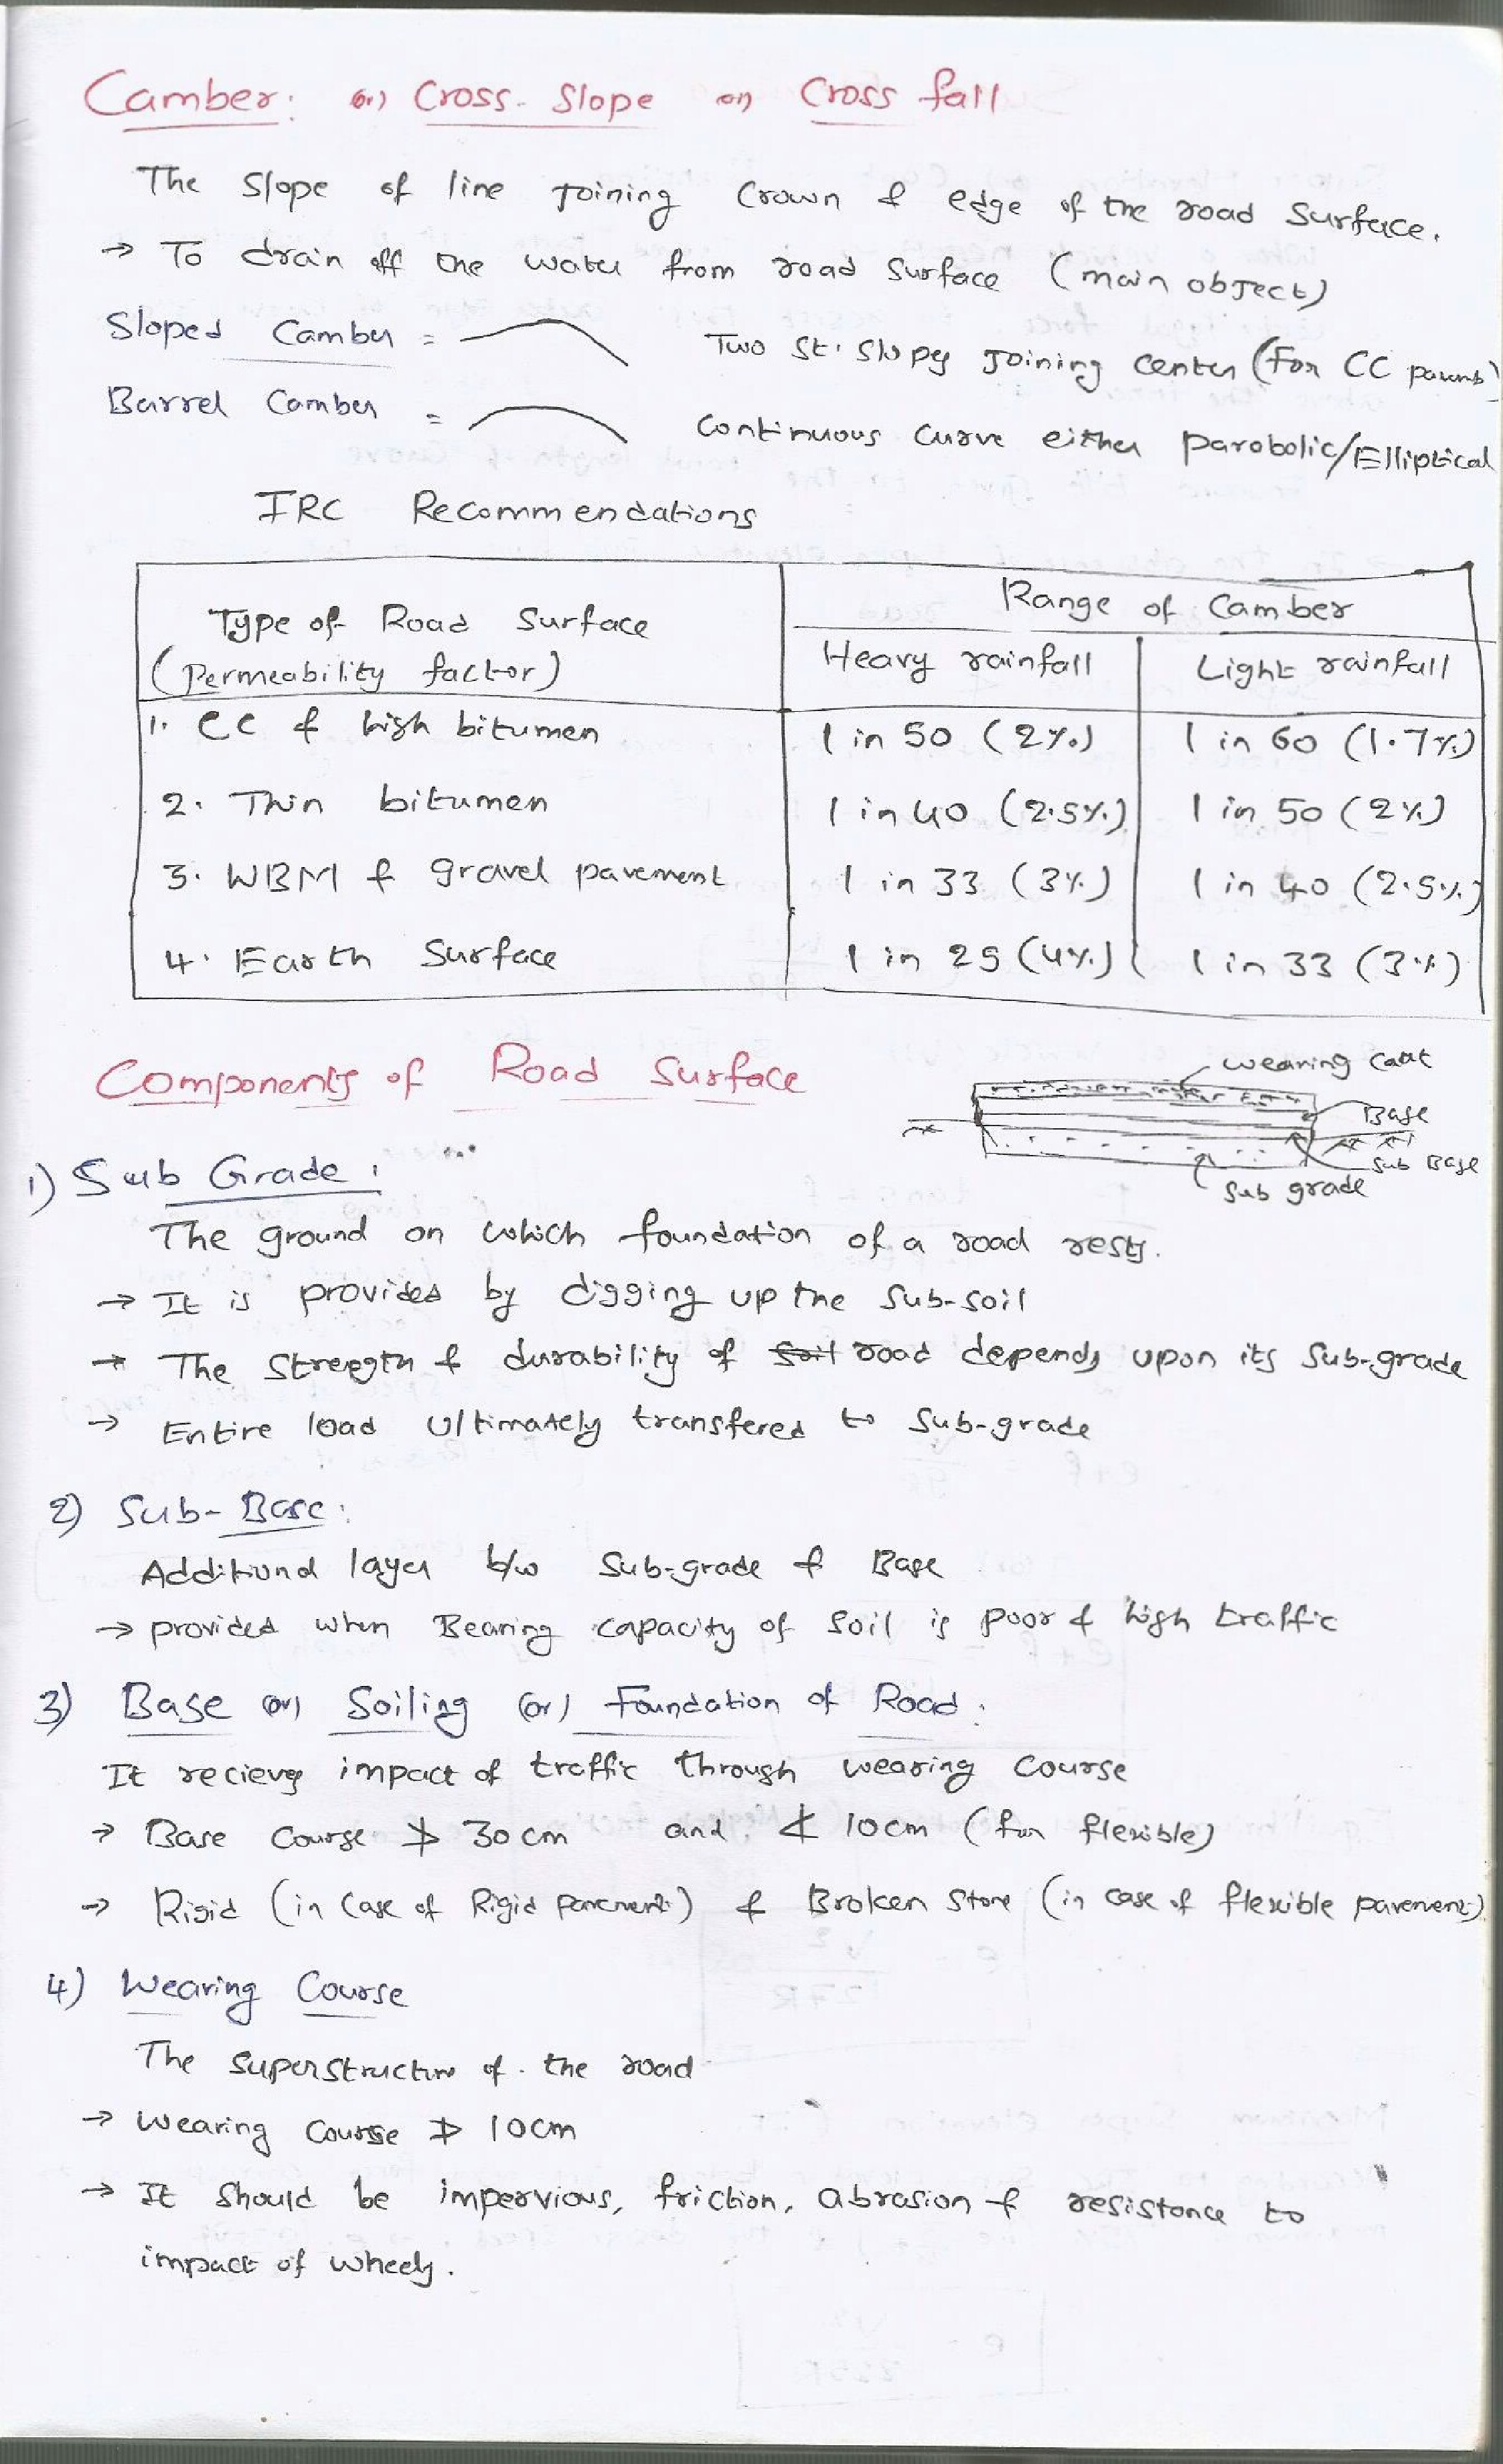 Camber: (or) Cross-Slope (or) Cross fall
The Slope of line Joining Crown & edge of the road Surface.
→ To drain off the water from road Surface (main object)
Sloped Camber = Two St. Slopes Joining Center (For CC pavements)
Barrel Camber = Continuous Curve either Parobolic/Elliptical
IRC Recommendations
Type of Road Surface
(Permeability factor)
Range of Camber
Heavy rainfall Light rainfall
1. CC & high bitumen 1 in 50 (2%) 1 in 60 (1.7%)
2. Thin bitumen 1 in 40 (2.5%) 1 in 50 (2%)
3. WBM & gravel pavement 1 in 33 (3%) 1 in 40 (2.5%)
4. Earth Surface 1 in 25 (4%) 1 in 33 (3%)
Components of Road Surface
wearing Coat
Base
Sub Base
Sub grade
1) Sub Grade:
The ground on which foundation of a road rests.
→ It is provided by digging up the Sub-soil
→ The Strength & durability of soil road depends upon its Sub-grade
→ Entire load Ultimately transfered to Sub-grade
2) Sub-Base:
Additional layer b/w Sub-grade & Base
→ provided when Bearing capacity of Soil is poor & high traffic
3) Base (or) Soiling (or) Foundation of Road:
It recieves impact of traffic through wearing Course
→ Base Course ≯ 30 cm and ≮ 10cm (for flexible)
→ Rigid (in Case of Rigid pavement) & Broken Stone (in case of flexible pavement)
4) Wearing Course
The Superstructure of the road
→ Wearing Course ≯ 10cm
→ It Should be impervious, friction, abrasion & resistance to
impact of wheels.